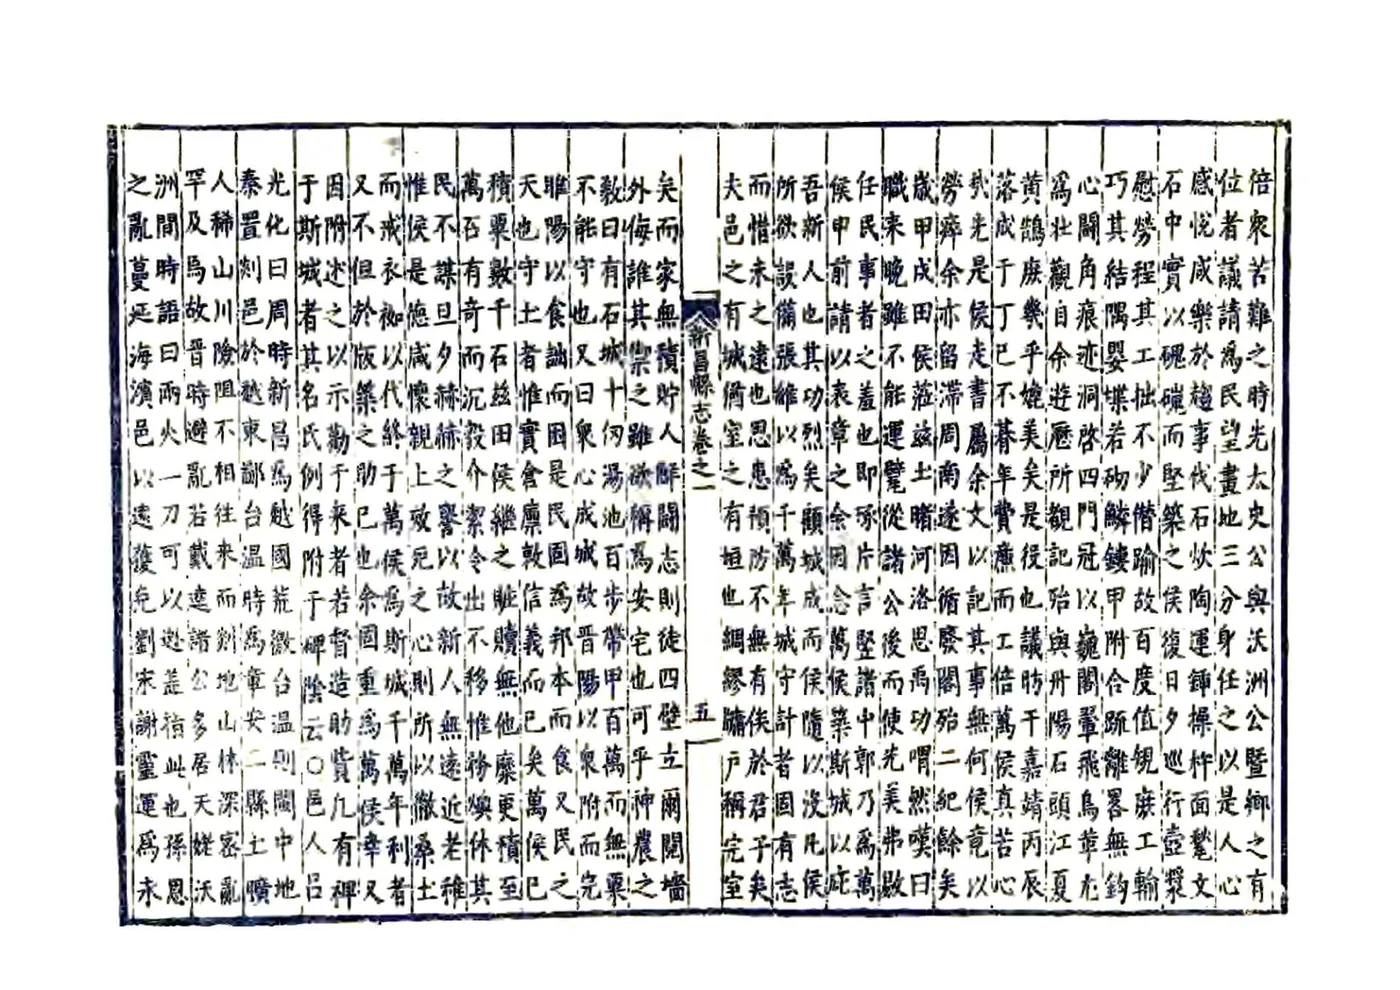 倍衆苦難之時先太史公與沃洲公暨鄉之有
位者議請爲民望畫地三分身任之以是人心
感悅咸樂於趨事伐石炊陶運錘操杵面甃文
石中實以磈磥而堅築之侯復日夕巡行壺漿
慰勞程其工拙不少僣踰故百度值規庀工輸
巧其結隅嬰堞若砌鱗鏤甲附合疏離畧無鈎
心鬬角痕迹洞啓四門冠以巍閣翬飛鳥革尤
爲壯觀自余遊歷所覩記殆與丹陽石頭江夏
黄鵠庶幾乎媲美矣是役也議昉于嘉靖丙辰
落成于丁巳不朞年費廉而工倍萬侯真苦心
哉先是侯走書屬余文以記其事無何侯竟以
勞瘁余亦留滯周南遂因循廢閣殆二紀餘矣
歲甲戌田侯蒞兹土睹河洛思禹功喟然嘆曰
職来晚雖不能運甓從諸公後而使先美弗
任民事者之羞也即琢片言堅諸中郭乃爲萬
侯申前請以表章之余因念萬侯築斯城以庇
吾新人也其功烈矣顧城成而侯隨以没凡侯
所欲設備張維以爲千萬年城守計者固有志
而惜未之遠也思患預防不無有俟於君子矣
夫邑之有城猶室之有垣也綢繆牖戶稱完室
新昌縣志卷之一
五
矣而家無積貯人鮮鬬志則徒四壁立爾鬩牆
外侮誰其禦之雖欲稱爲安宅也可乎神農之
教曰有石城十仞湯池百步帶甲百萬而無粟
不能守也又曰衆心成城故晋陽以衆附而完
睢陽以食詘而困是民固爲邦本而食又民之
天也守土者惟實倉廪敦信義而已矣萬侯已
積粟數千石兹田侯繼之賍贖無他糜更積至
萬石有奇而沉毅介潔令出不移惟務燠休其
民不謀旦夕赫赫之譽以故新人無遠近老稚
惟侯是德咸懷親上效死之心則所以徹桑土
而戒衣袽以代終于萬侯爲斯城千萬年利者
又不但於版築之助已也余固重爲萬侯幸又
因附述之以示勸于来者若督造助貲凡有禆
于斯城者其名氏例得附于碑陰云○邑人吕
光化曰周時新昌爲越國荒徼台温則閩中地
秦置剡邑於越東鄙台温時爲章安二縣土曠
人稀山川險阻不相往来而剡地山林深密亂
罕及焉故晋時避亂若戴逵諸公多居天姥沃
洲間時語曰兩火一刀可以逃盖指此也孫恩
之亂蔓延海濱邑以遠獲免劉宋謝靈運爲永